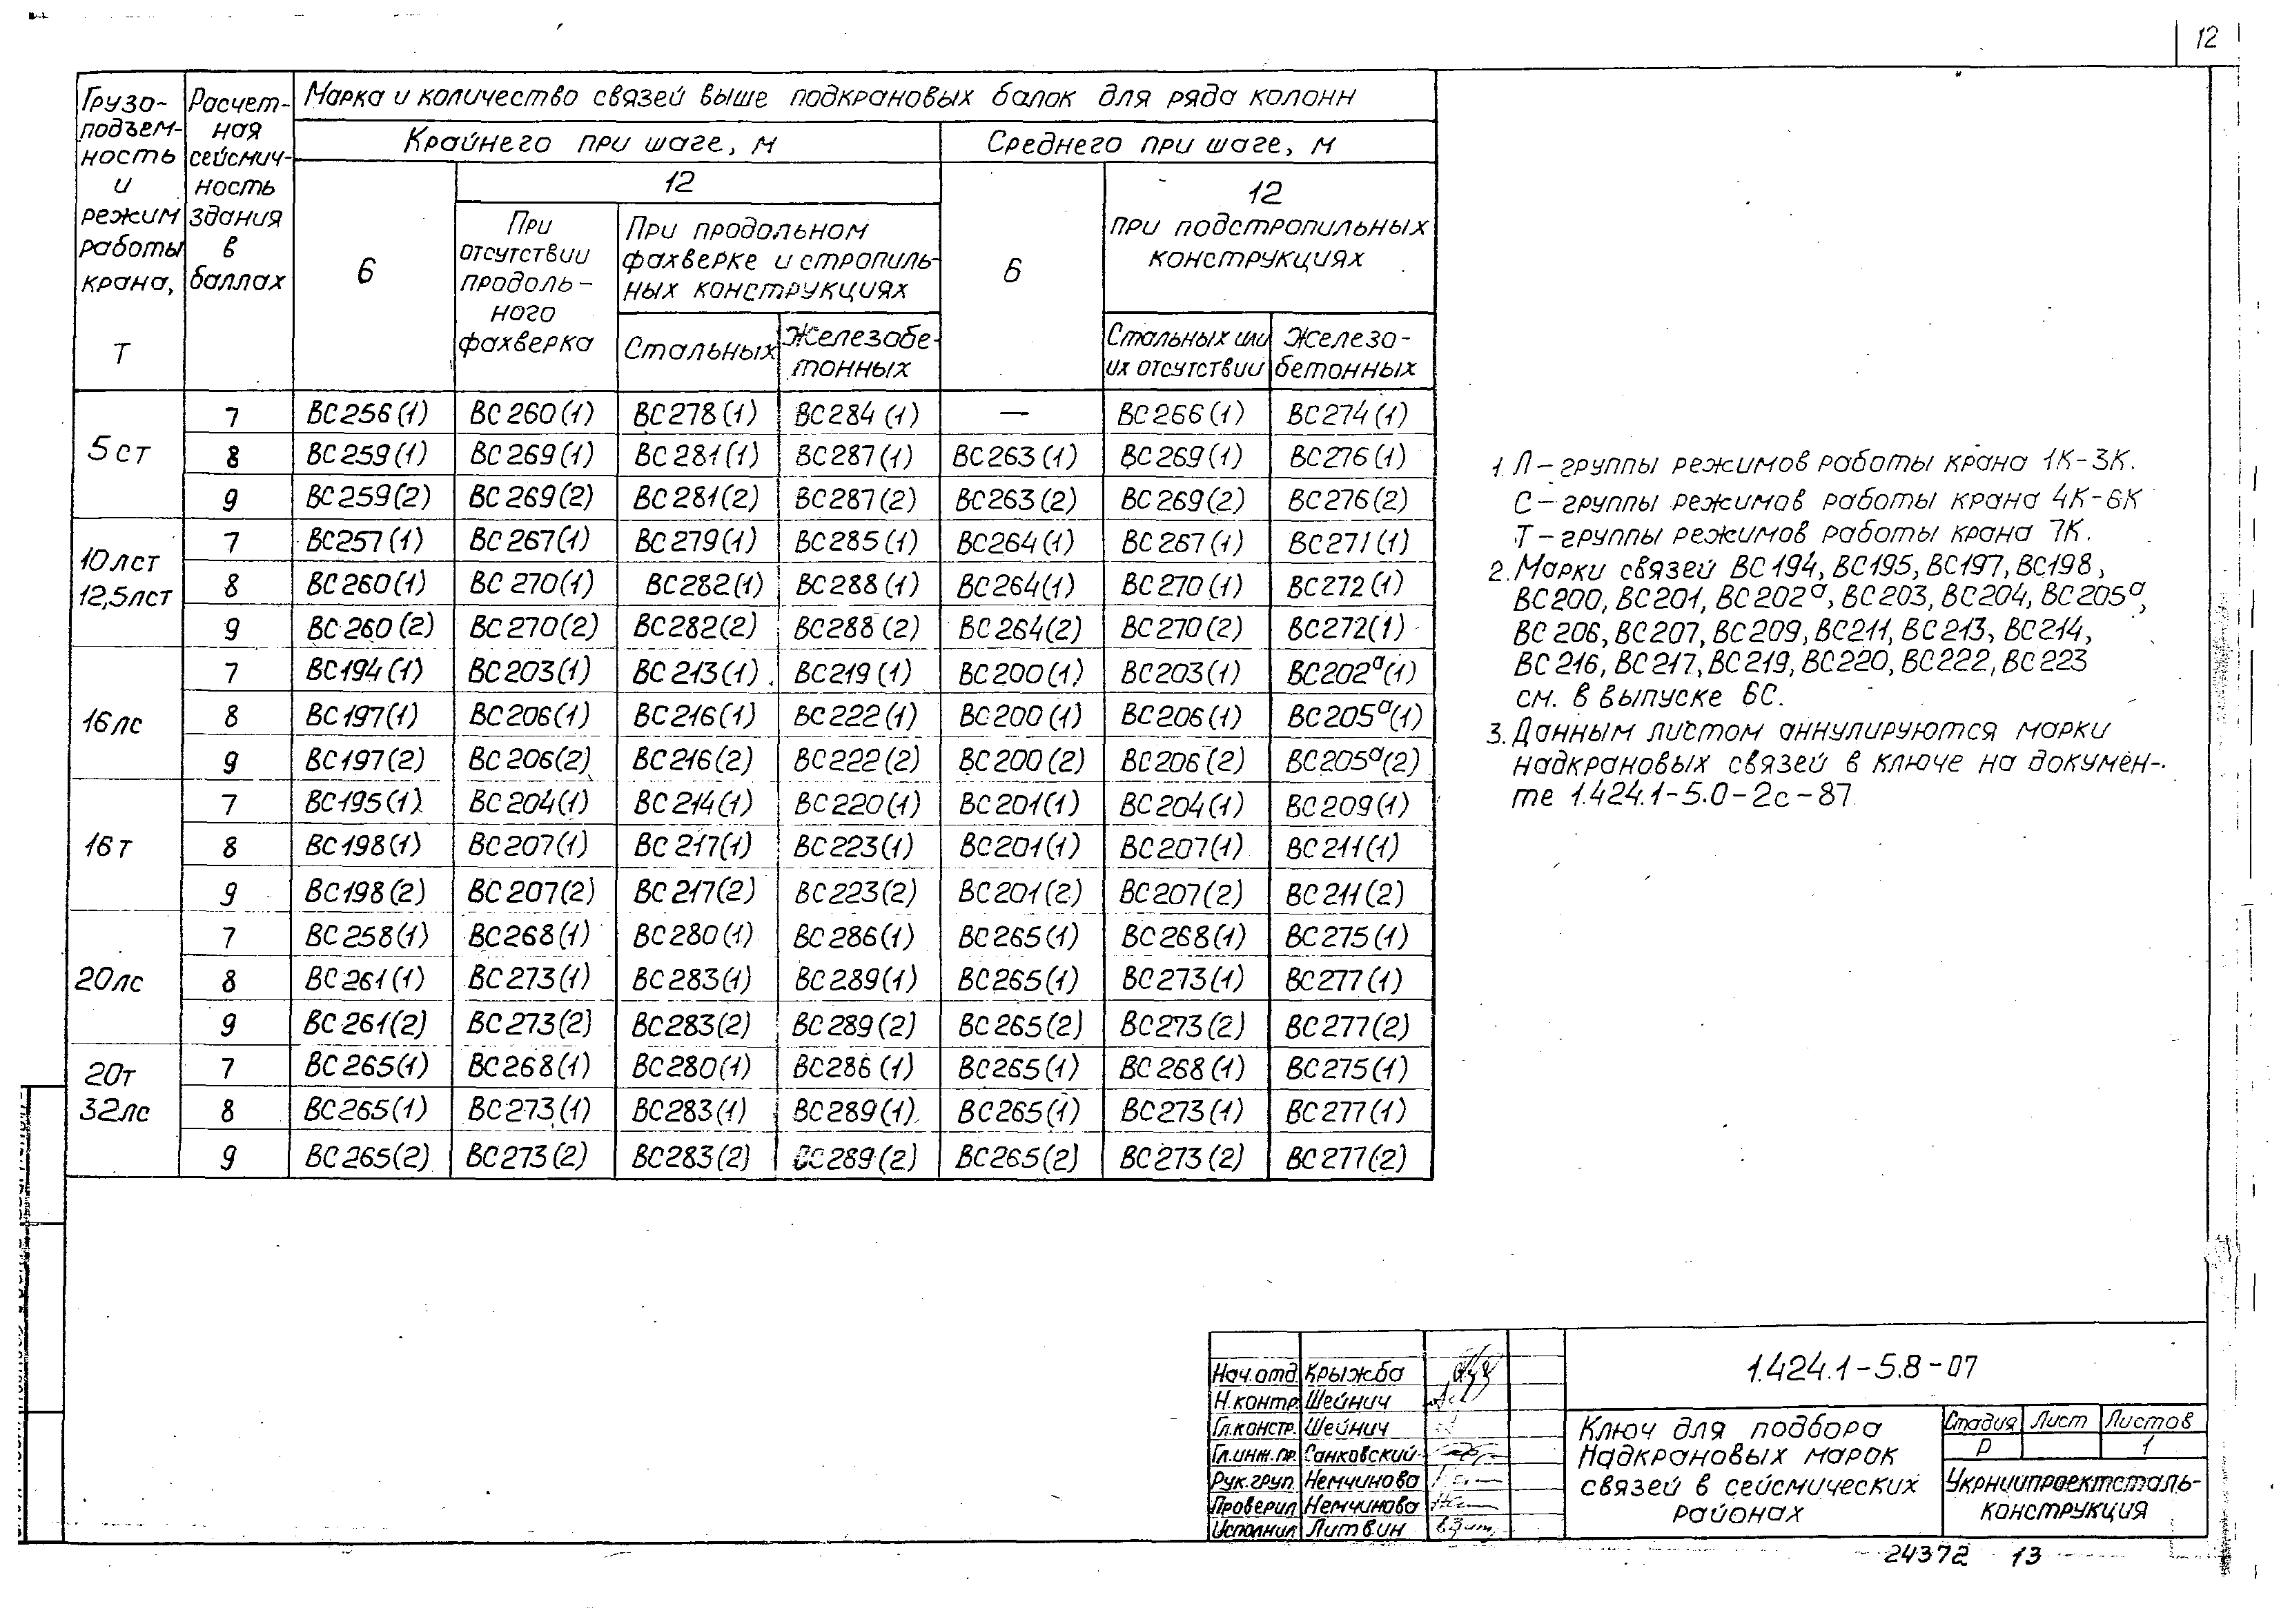 12
Грузо-
подъем-
ность
и
режим
работы
крана,
т
Расчет-
ная
сейсмич-
ность
здания
в
баллах
Марка и количество связей выше подкрановых балок для ряда колонн
Крайнего при шаге, м
Среднего при шаге, м
6
12
При
отсутствии
продоль-
ного
фахверка
При продольном
фахверке и стропиль-
ных конструкциях
Стальных
Железобе-
тонных
6
12
при подстропильных
конструкциях
Стальных или
их отсутствии
Железо-
бетонных
5ст
7 ВС256(1) ВС260(1) ВС278(1) ВС284(1) — ВС266(1) ВС274(1)
8 ВС259(1) ВС269(1) ВС281(1) ВС287(1) ВС263(1) ВС269(1) ВС276(1)
9 ВС259(2) ВС269(2) ВС281(2) ВС287(2) ВС263(2) ВС269(2) ВС276(2)
10лст
12,5лст
7 ВС257(1) ВС267(1) ВС279(1) ВС285(1) ВС264(1) ВС267(1) ВС271(1)
8 ВС260(1) ВС270(1) ВС282(1) ВС288(1) ВС264(1) ВС270(1) ВС272(1)
9 ВС260(2) ВС270(2) ВС282(2) ВС288(2) ВС264(2) ВС270(2) ВС272(1)
16лс
7 ВС194(1) ВС203(1) ВС213(1) ВС219(1) ВС200(1) ВС203(1) ВС202ᵃ(1)
8 ВС197(1) ВС206(1) ВС216(1) ВС222(1) ВС200(1) ВС206(1) ВС205ᵃ(1)
9 ВС197(2) ВС206(2) ВС216(2) ВС222(2) ВС200(2) ВС206(2) ВС205ᵃ(2)
16т
7 ВС195(1) ВС204(1) ВС214(1) ВС220(1) ВС201(1) ВС204(1) ВС209(1)
8 ВС198(1) ВС207(1) ВС217(1) ВС223(1) ВС201(1) ВС207(1) ВС211(1)
9 ВС198(2) ВС207(2) ВС217(2) ВС223(2) ВС201(2) ВС207(2) ВС211(2)
20лс
7 ВС258(1) ВС268(1) ВС280(1) ВС286(1) ВС265(1) ВС268(1) ВС275(1)
8 ВС261(1) ВС273(1) ВС283(1) ВС289(1) ВС265(1) ВС273(1) ВС277(1)
9 ВС261(2) ВС273(2) ВС283(2) ВС289(2) ВС265(2) ВС273(2) ВС277(2)
20т
32лс
7 ВС265(1) ВС268(1) ВС280(1) ВС286(1) ВС265(1) ВС268(1) ВС275(1)
8 ВС265(1) ВС273(1) ВС283(1) ВС289(1) ВС265(1) ВС273(1) ВС277(1)
9 ВС265(2) ВС273(2) ВС283(2) ВС289(2) ВС265(2) ВС273(2) ВС277(2)
1. Л – группы режимов работы крана 1К–3К.
С – группы режимов работы крана 4К–6К
Т – группы режимов работы крана 7К.
2. Марки связей ВС194, ВС195, ВС197, ВС198,
ВС200, ВС201, ВС202ᵃ, ВС203, ВС204, ВС205ᵃ,
ВС206, ВС207, ВС209, ВС211, ВС213, ВС214,
ВС216, ВС217, ВС219, ВС220, ВС222, ВС223
см. в выпуске 6С.
3. Данным листом аннулируются марки
надкрановых связей в ключе на докумен-
те 1.424.1–5.0–2с–87
Нач.отд. Крыжба
Н.контр. Шейнич
Гл.констр. Шейнич
Гл.инж.пр. Санковский
Рук.груп. Немчинова
Проверил Немчинова
Исполнил Литвин
1.424.1–5.8–07
Ключ для подбора
надкрановых марок
связей в сейсмических
районах
Стадия Лист Листов
Р 1
Укрниипроектсталь-
конструкция
24372 13